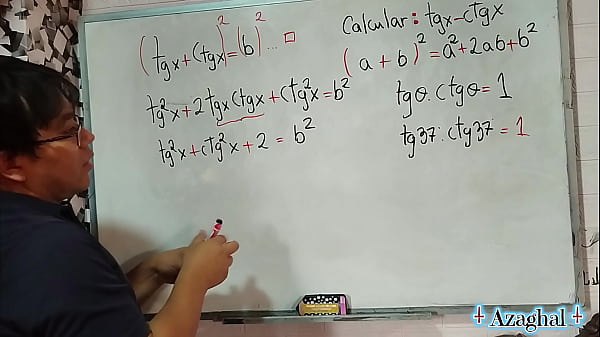 (tgx+ctgx)²=(b)²...□
tg²x+2tgxctgx+ctg²x=b²
tg²x+ctg²x+2=b²
Calcular: tgx-ctgx
(a+b)²=a²+2ab+b²
tgθ.ctgθ=1
tg37.ctg37=1
+ Azaghal +